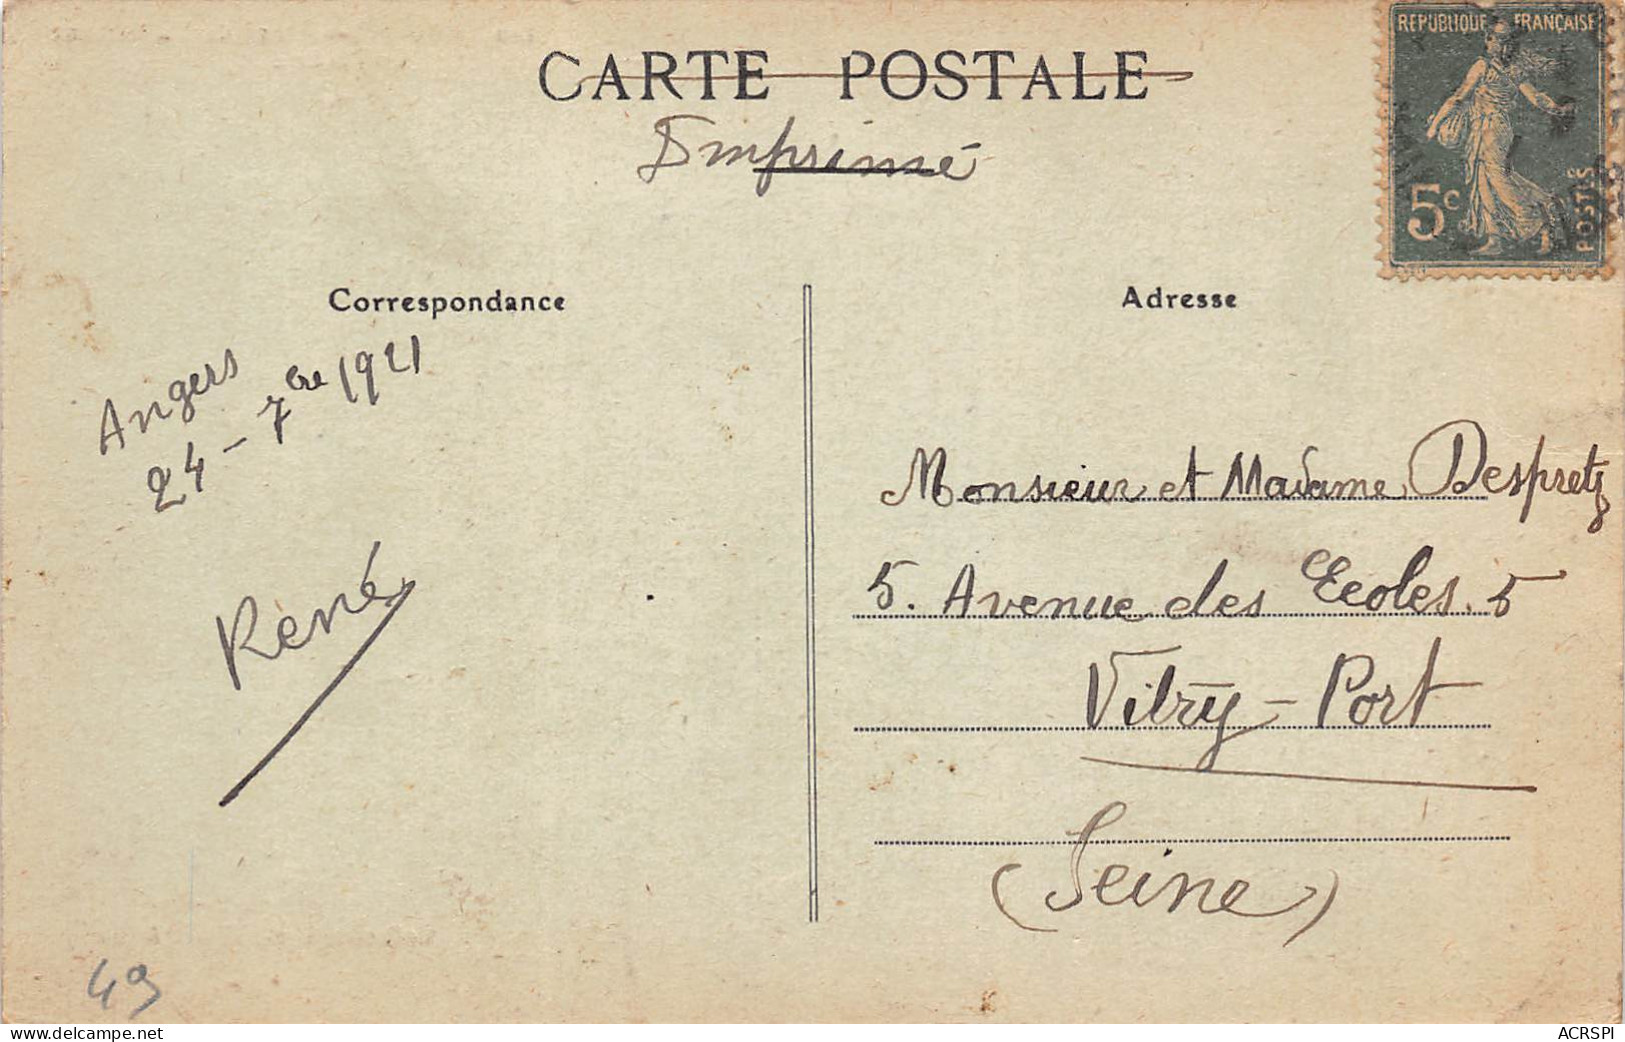 CARTE POSTALE
Imprimé
REPUBLIQUE FRANÇAISE
5c
POSTES
Correspondance
Adresse
Angers
24 - 7bre 1921
René
Monsieur et Madame Despretz
5. Avenue des Ecoles. 5
Vitry-Port
(Seine)
49
www.delcampe.net
ACRSPI